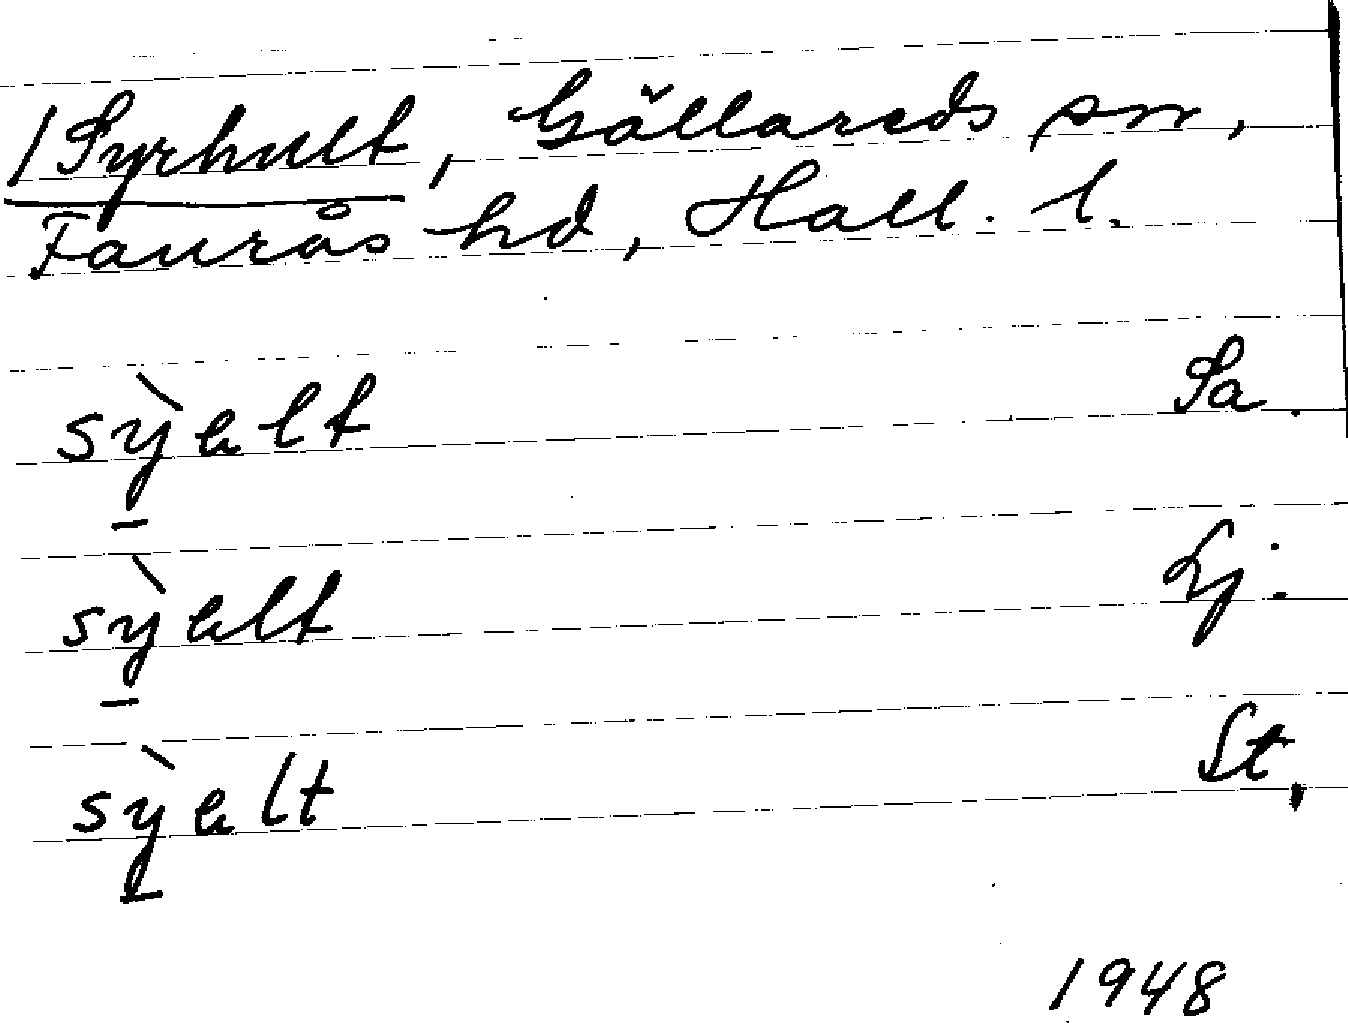 /Syrhult, Gällareds sn,
Faurås hd, Hall. l.
sỳhlt Sa.
sỳhlt Lj.
sỳhlt St.
1948